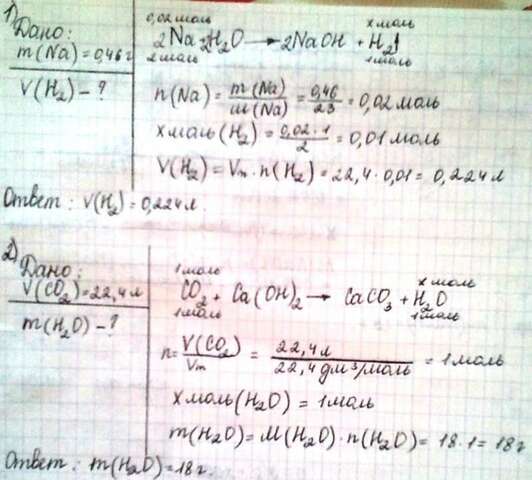 1) Дано:
m(Na)=0,46 г
V(H₂) - ?
0,02 моль x моль
2Na+2H₂O → 2NaOH + H₂↑
2 моль 1 моль
n(Na) = m(Na)/M(Na) = 0,46/23 = 0,02 моль
x моль (H₂) = 0,02·1/2 = 0,01 моль
V(H₂) = Vm · n(H₂) = 22,4 · 0,01 = 0,224 л
Ответ: V(H₂) = 0,224 л.
2) Дано:
V(CO₂)=22,4 л
m(H₂O) - ?
1 моль x моль
CO₂ + Ca(OH)₂ → CaCO₃ + H₂O
1 моль 1 моль
n= V(CO₂)/Vm = 22,4 л/22,4 дм³/моль = 1 моль
x моль (H₂O) = 1 моль
m(H₂O) = M(H₂O) · n(H₂O) = 18 · 1 = 18 г
Ответ: m(H₂O) = 18 г.